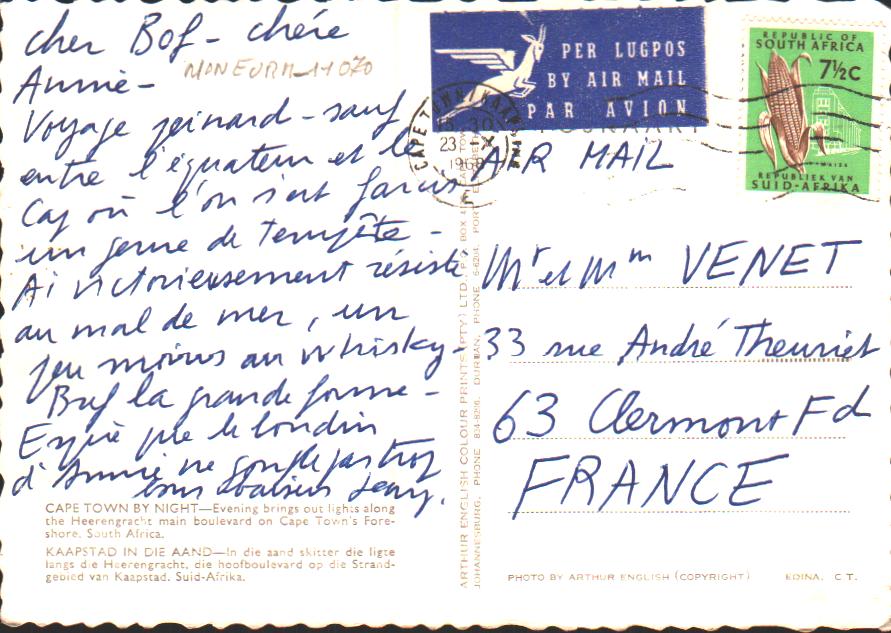 cher Bof - chère
Annie -
MANEURA_11070
Voyage peinard - sauf
entre l'équateur et le
Cap où l'on s'est farcis
un genre de Tempête -
Ai victorieusement résisté
au mal de mer, un
peu moins au whisky -
Bref la grande forme -
Espère que le boudin
d'Annie ne gonfle pas trop
bons baisers
CAPE TOWN BY NIGHT—Evening brings out lights along
the Heerengracht main boulevard on Cape Town's Fore-
shore. South Africa.
KAAPSTAD IN DIE AAND—In die aand skitter die ligte
langs die Heerengracht, die hoofboulevard op die Strand-
gebied van Kaapstad. Suid-Afrika.
ARTHUR ENGLISH COLOUR PRINTS (PTY) LTD. P.O. BOX
JOHANNESBURG. PHONE 834-8256. DURBAN. PHONE
PER LUGPOS
BY AIR MAIL
PAR AVION
CAPE TOWN KAAPSTAD
23 IX
1969
REPUBLIC OF
SOUTH AFRICA
7½C
REPUBLIEK VAN
SUID-AFRIKA
AIR MAIL
Mr et Mme VENET
33 rue André Theuriet
63 Clermont Fd
FRANCE
PHOTO BY ARTHUR ENGLISH (COPYRIGHT)
EDINA, C.T.